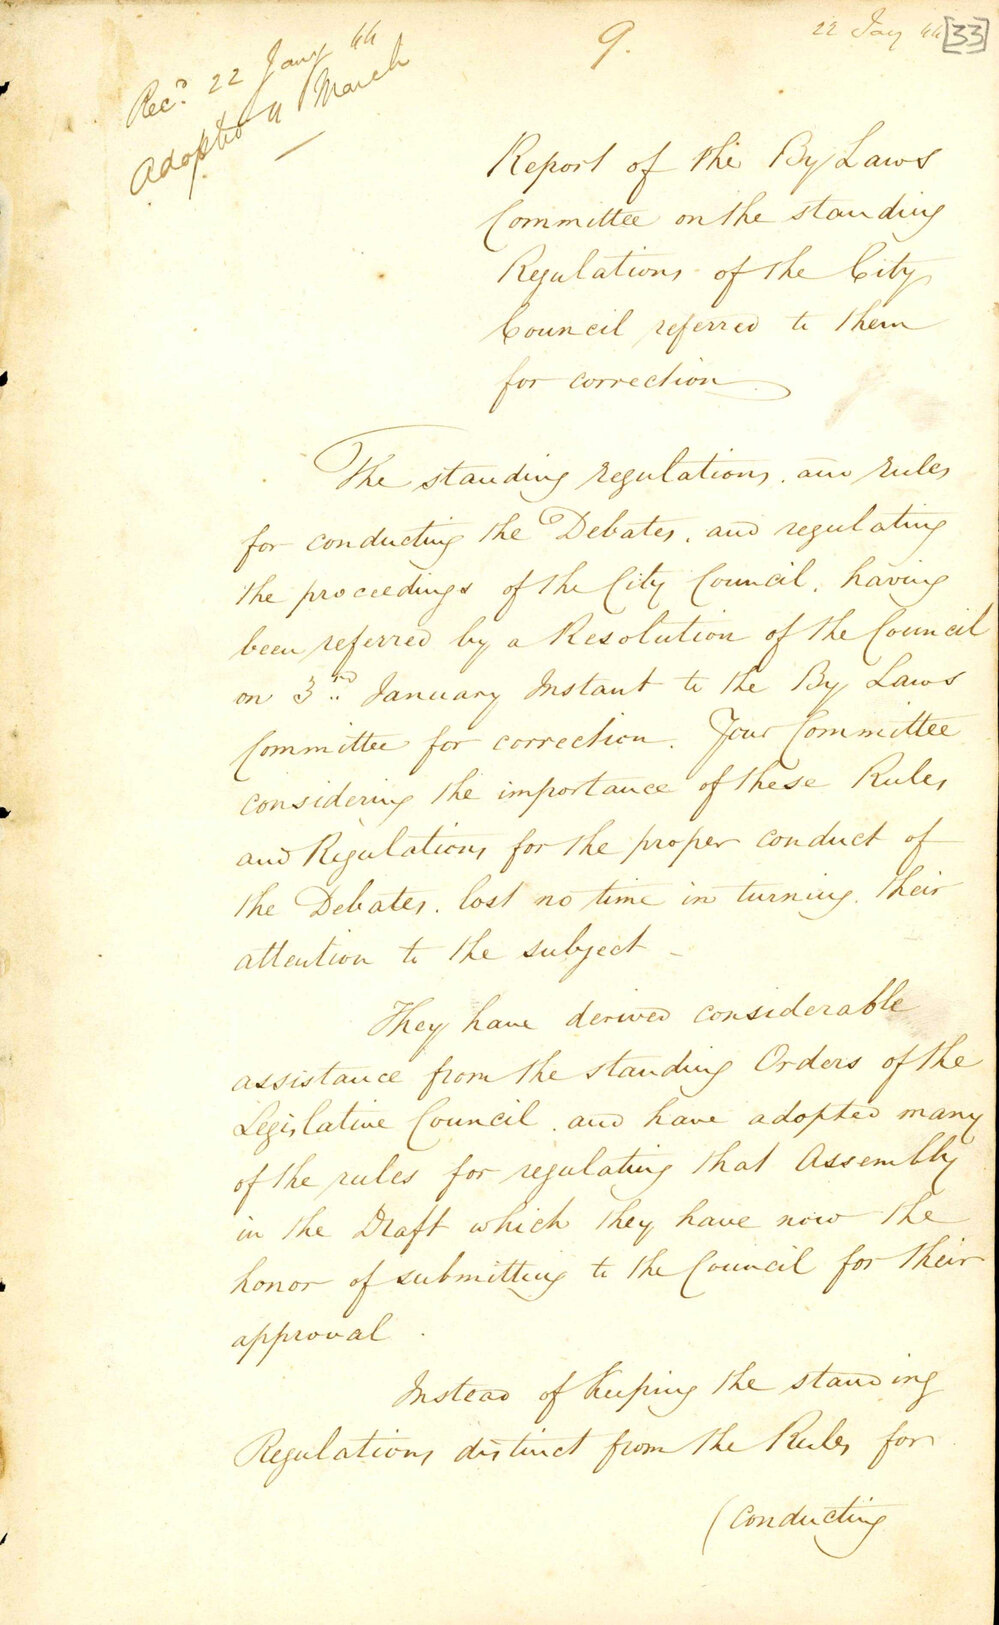 9.
22 Jany 44 [33]
Recd 22 Jany 44
Adopted 11 March
Report of the By Laws
Committee on the standing
Regulations of the City
Council referred to them
for correction
The standing regulations, and rules
for conducting the Debates, and regulating
the proceedings of the City Council, having
been referred by a Resolution of the Council
on 3rd January Instant to the By Laws
Committee for correction. Your Committee
considering the importance of these Rules
and Regulations for the proper conduct of
the Debates, lost no time in turning their
attention to the subject –
They have derived considerable
assistance from the standing Orders of the
Legislative Council, and have adopted many
of the rules for regulating that Assembly
in the Draft which they have now the
honor of submitting to the Council for their
approval.
Instead of keeping the standing
Regulations distinct from the Rules for
(conducting